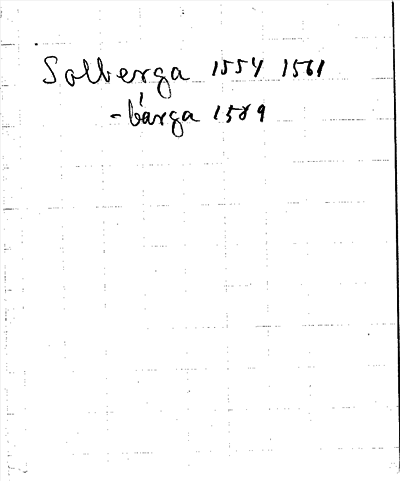 Solberga 1554 1561
-bärga 1589